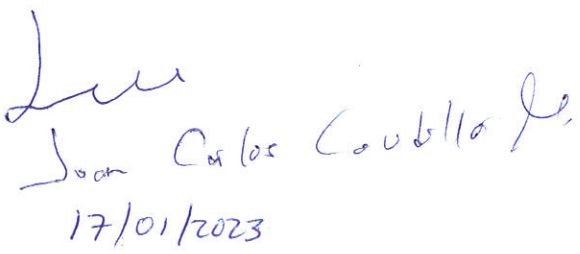 Juan Carlos Caudillo
17/01/2023